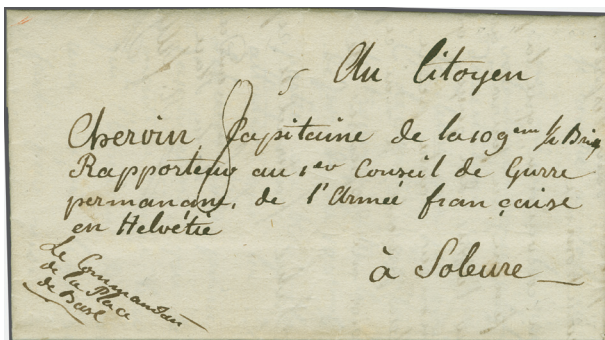 Au Citoyen
Chervin, Capitaine de la 109eme 1/2 Brig
Rapporteur au 1er Conseil de Gurre
permanant, de l'Armée française
en Helvétie
à Soleure
Le Commandan
de la Place
de Basle